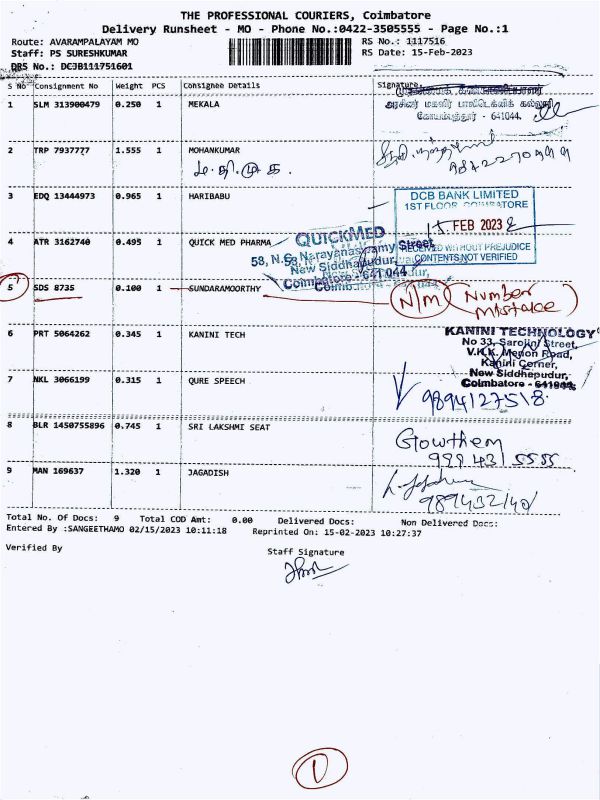 THE PROFESSIONAL COURIERS, Coimbatore
Delivery Runsheet - MO - Phone No.:0422-3505555 - Page No.:1
Route: AVARAMPALAYAM MO
RS No.: 1117516
Staff: PS SURESHKUMAR
RS Date: 15-Feb-2023
DRS No.: DCJB111751601
S No Consignment No Weight PCS Consignee Details Signature
1 SLM 313900479 0.250 1 MEKALA
அரசினர் மகளிர் பாலிடெக்னிக் கல்லூரி
கோயம்புத்தூர் - 641044.
2 TRP 7937777 1.555 1 MOHANKUMAR
3 EDQ 13444973 0.965 1 HARIBABU
DCB BANK LIMITED
1ST FLOOR, COIMBATORE
15 FEB 2023
RECEIVED WITHOUT PREJUDICE
CONTENTS NOT VERIFIED
4 ATR 3162740 0.495 1 QUICK MED PHARMA
QUICKMED
58, N.G. Narayanaswamy Street
New Siddhapudur,
Coimbatore - 641 044
5 SDS 8735 0.100 1 SUNDARAMOORTHY
N/M (Number
Mistake)
6 PRT 5064262 0.345 1 KANINI TECH
KANINI TECHNOLOGY
No 33, Sarojini Street,
V.K.K. Menon Road,
Kanini Corner,
New Siddhepudur,
Coimbatore - 641044.
7 NKL 3066199 0.315 1 QURE SPEECH
9894127518.
8 BLR 1450755896 0.745 1 SRI LAKSHMI SEAT
Gowthem
99943 15555
9 MAN 169637 1.320 1 JAGADISH
Total No. Of Docs: 9 Total COD Amt: 0.00 Delivered Docs: Non Delivered Docs:
Entered By :SANGEETHAMO 02/15/2023 10:11:18 Reprinted On: 15-02-2023 10:27:37
Verified By
Staff Signature
1